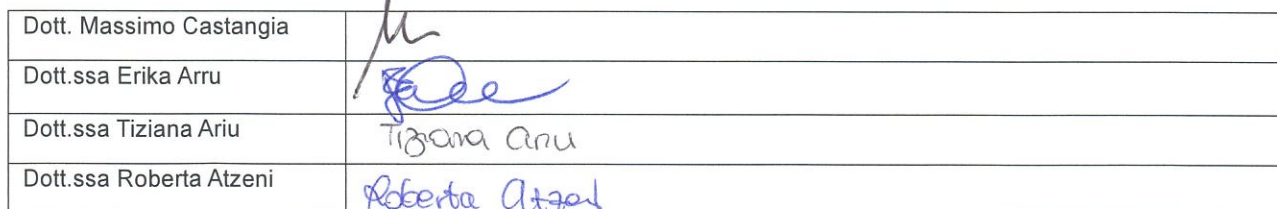 Dott. Massimo Castangia
Dott.ssa Erika Arru
Dott.ssa Tiziana Ariu Tiziana Ariu
Dott.ssa Roberta Atzeni Roberta Atzeni